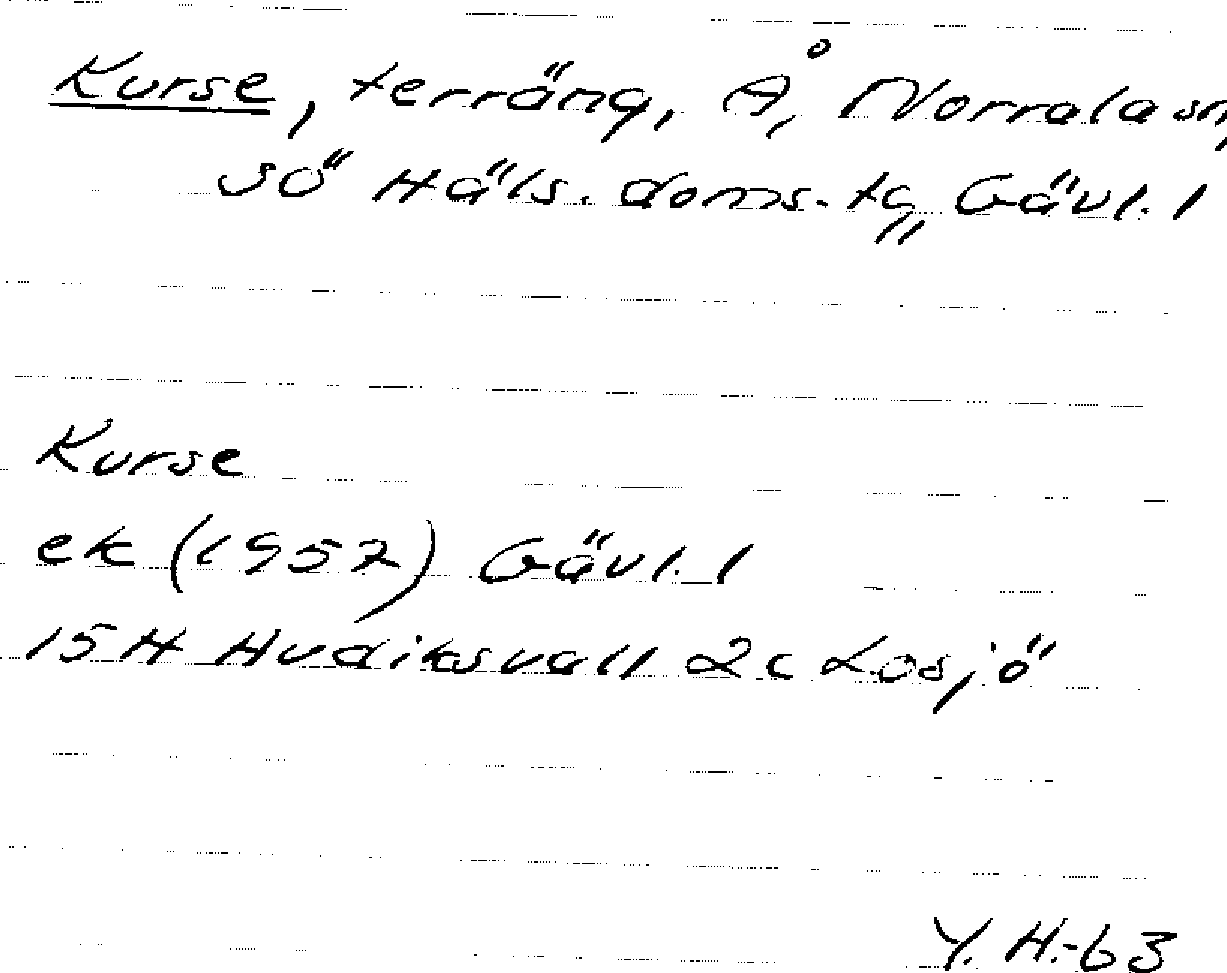 Kurse, terräng, Å, Norrala sn,
SÖ Häls. doms. tg, Gävl. l
Kurse
ek (1957) Gävl. l
15H Hudiksvall 2c Losjö
Y. H.-63